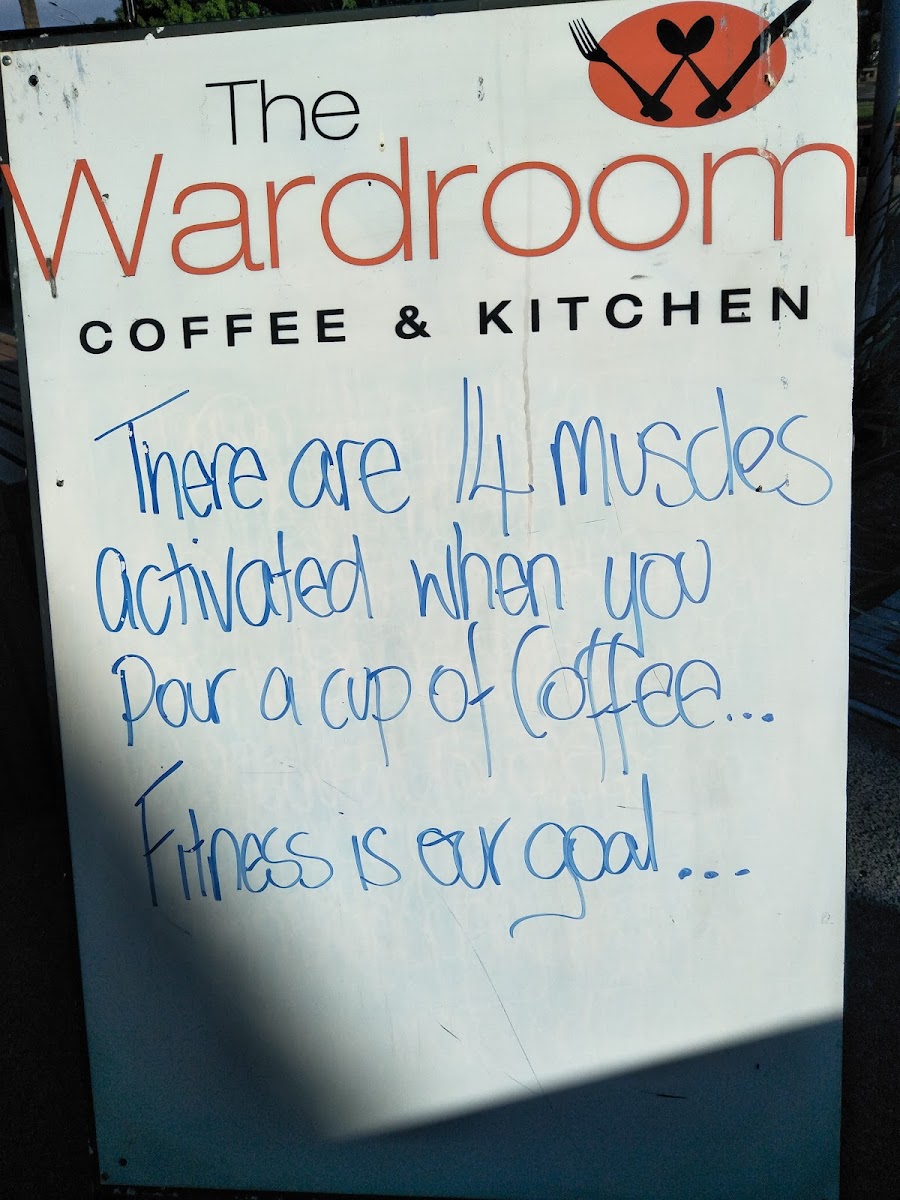 The
Wardroom
COFFEE & KITCHEN
There are 14 muscles
activated when you
Pour a cup of Coffee...
Fitness is our goal...